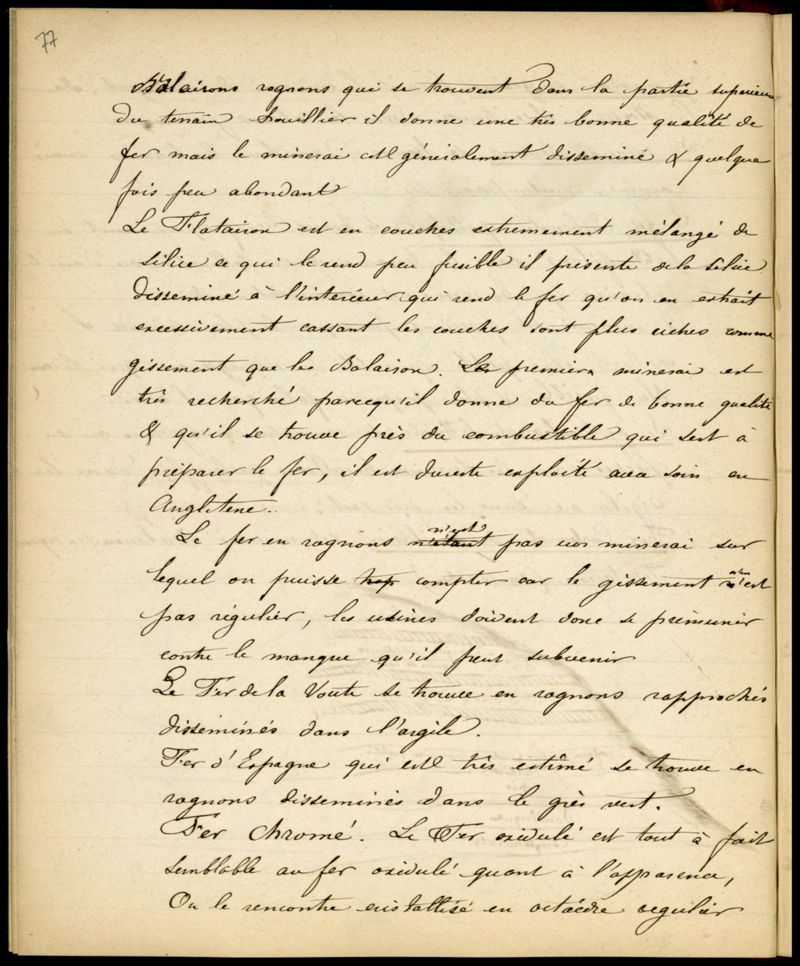 77
Balairons rognons qui se trouvent dans la partie superieure
du terrain houillier il donne une très bonne qualité de
fer mais le minerai est génèralement disseminé & quelque
fois peu abondant
Le Flatairon est en couches extremement mélangé de
silice ce qui le rend peu fusible il présente de la silice
disseminé à l'interieur qui rend le fer qu'on en extrait
excessivement cassant les couches sont plus riches comme
gissement que les Balairon. Le premier minerai est
très recherché parcequ'il donne du fer de bonne qualité
& qu'il se trouve près du combustible qui sert à
préparer le fer, il est du reste exploité avec soin en
Angleterre.
Le fer en rognons n'étant n'est pas un minerai sur
lequel on puisse trop compter car le gissement n'est
pas régulier, les usines doivent donc se prémunir
contre le manque qu'il peut subvenir
Le Fer de la Voute se trouve en rognons rapprochés
disséminés dans l'argile.
Fer d'Espagne qui est très estimé se trouve en
rognons disseminés dans le grès vert.
Fer Chromé. Le Fer oxidulé est tout à fait
semblable au fer oxidulé quant à l'apparence,
On le rencontre cristallisé en octaèdre regulier